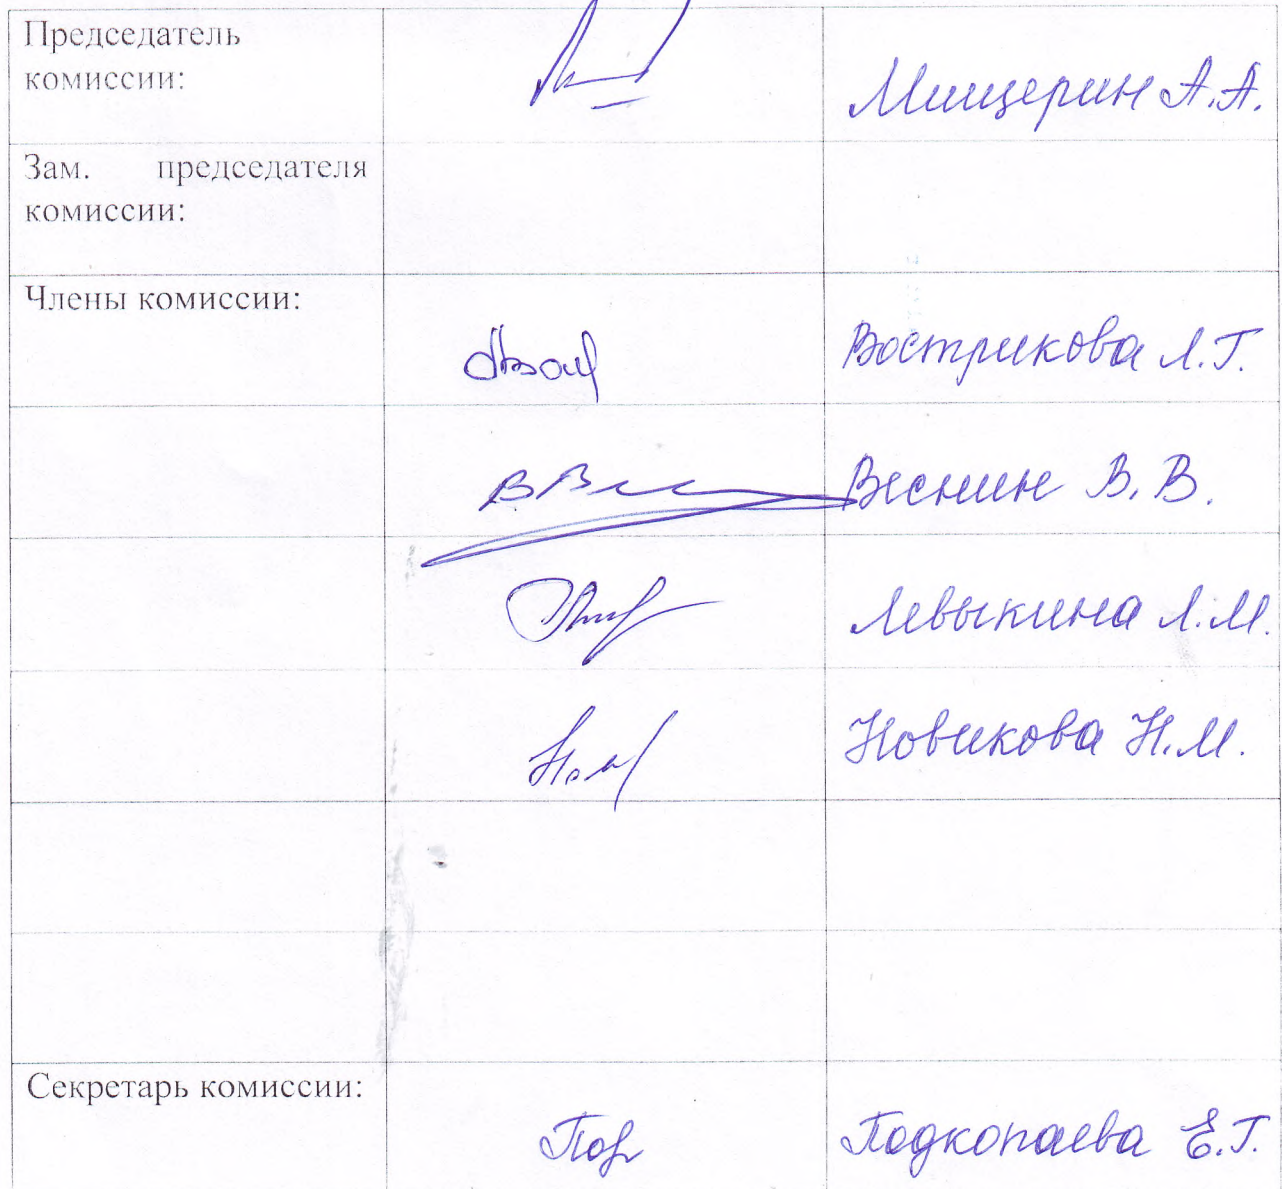 Председатель
комиссии:
Мищерин А.А.
Зам. председателя
комиссии:
Члены комиссии:
Вострикова Л.Г.
Веснин В.В.
Левыкина Л.М.
Новикова Н.М.
Секретарь комиссии:
Подкопаева Е.Г.